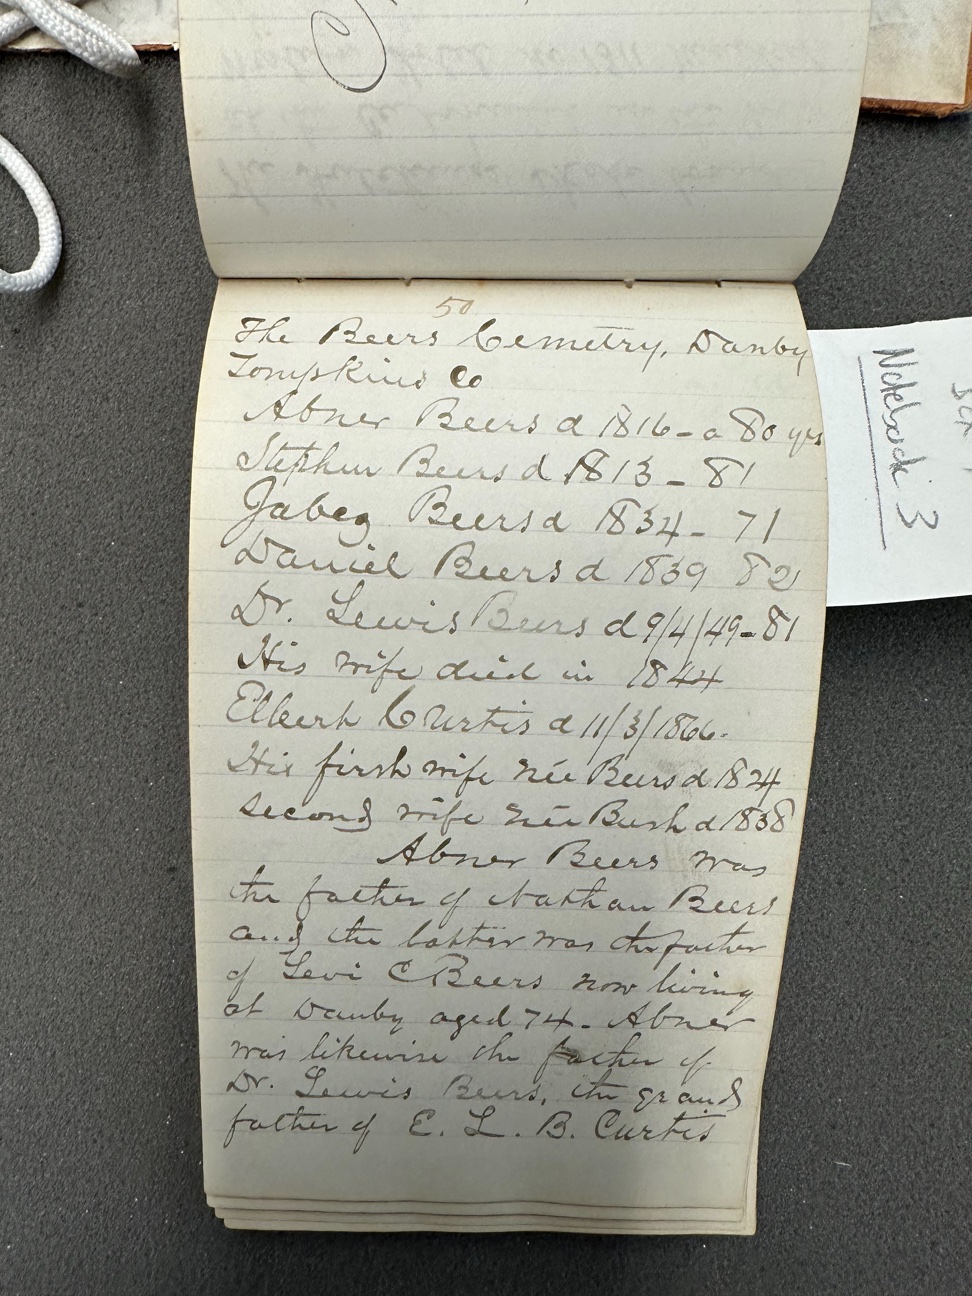 50
The Beers Cemetry, Danby
Tompkins Co
Abner Beers d 1816 - a 80 yrs
Stephen Beers d 1813 - 81
Jabez Beers d 1834 - 71
Daniel Beers d 1839 82
Dr. Lewis Beers d 9/4/49 - 81
His wife died in 1844
Elbert Curtis d 11/3/1866.
His first wife née Beers d 1824
second wife née Bush d 1838
Abner Beers was
the father of Nathan Beers
and the latter was the father
of Levi C Beers now living
at Danby aged 74 - Abner
was likewise the father of
Dr. Lewis Beers, the grand
father of E. L. B. Curtis
Notebook 3